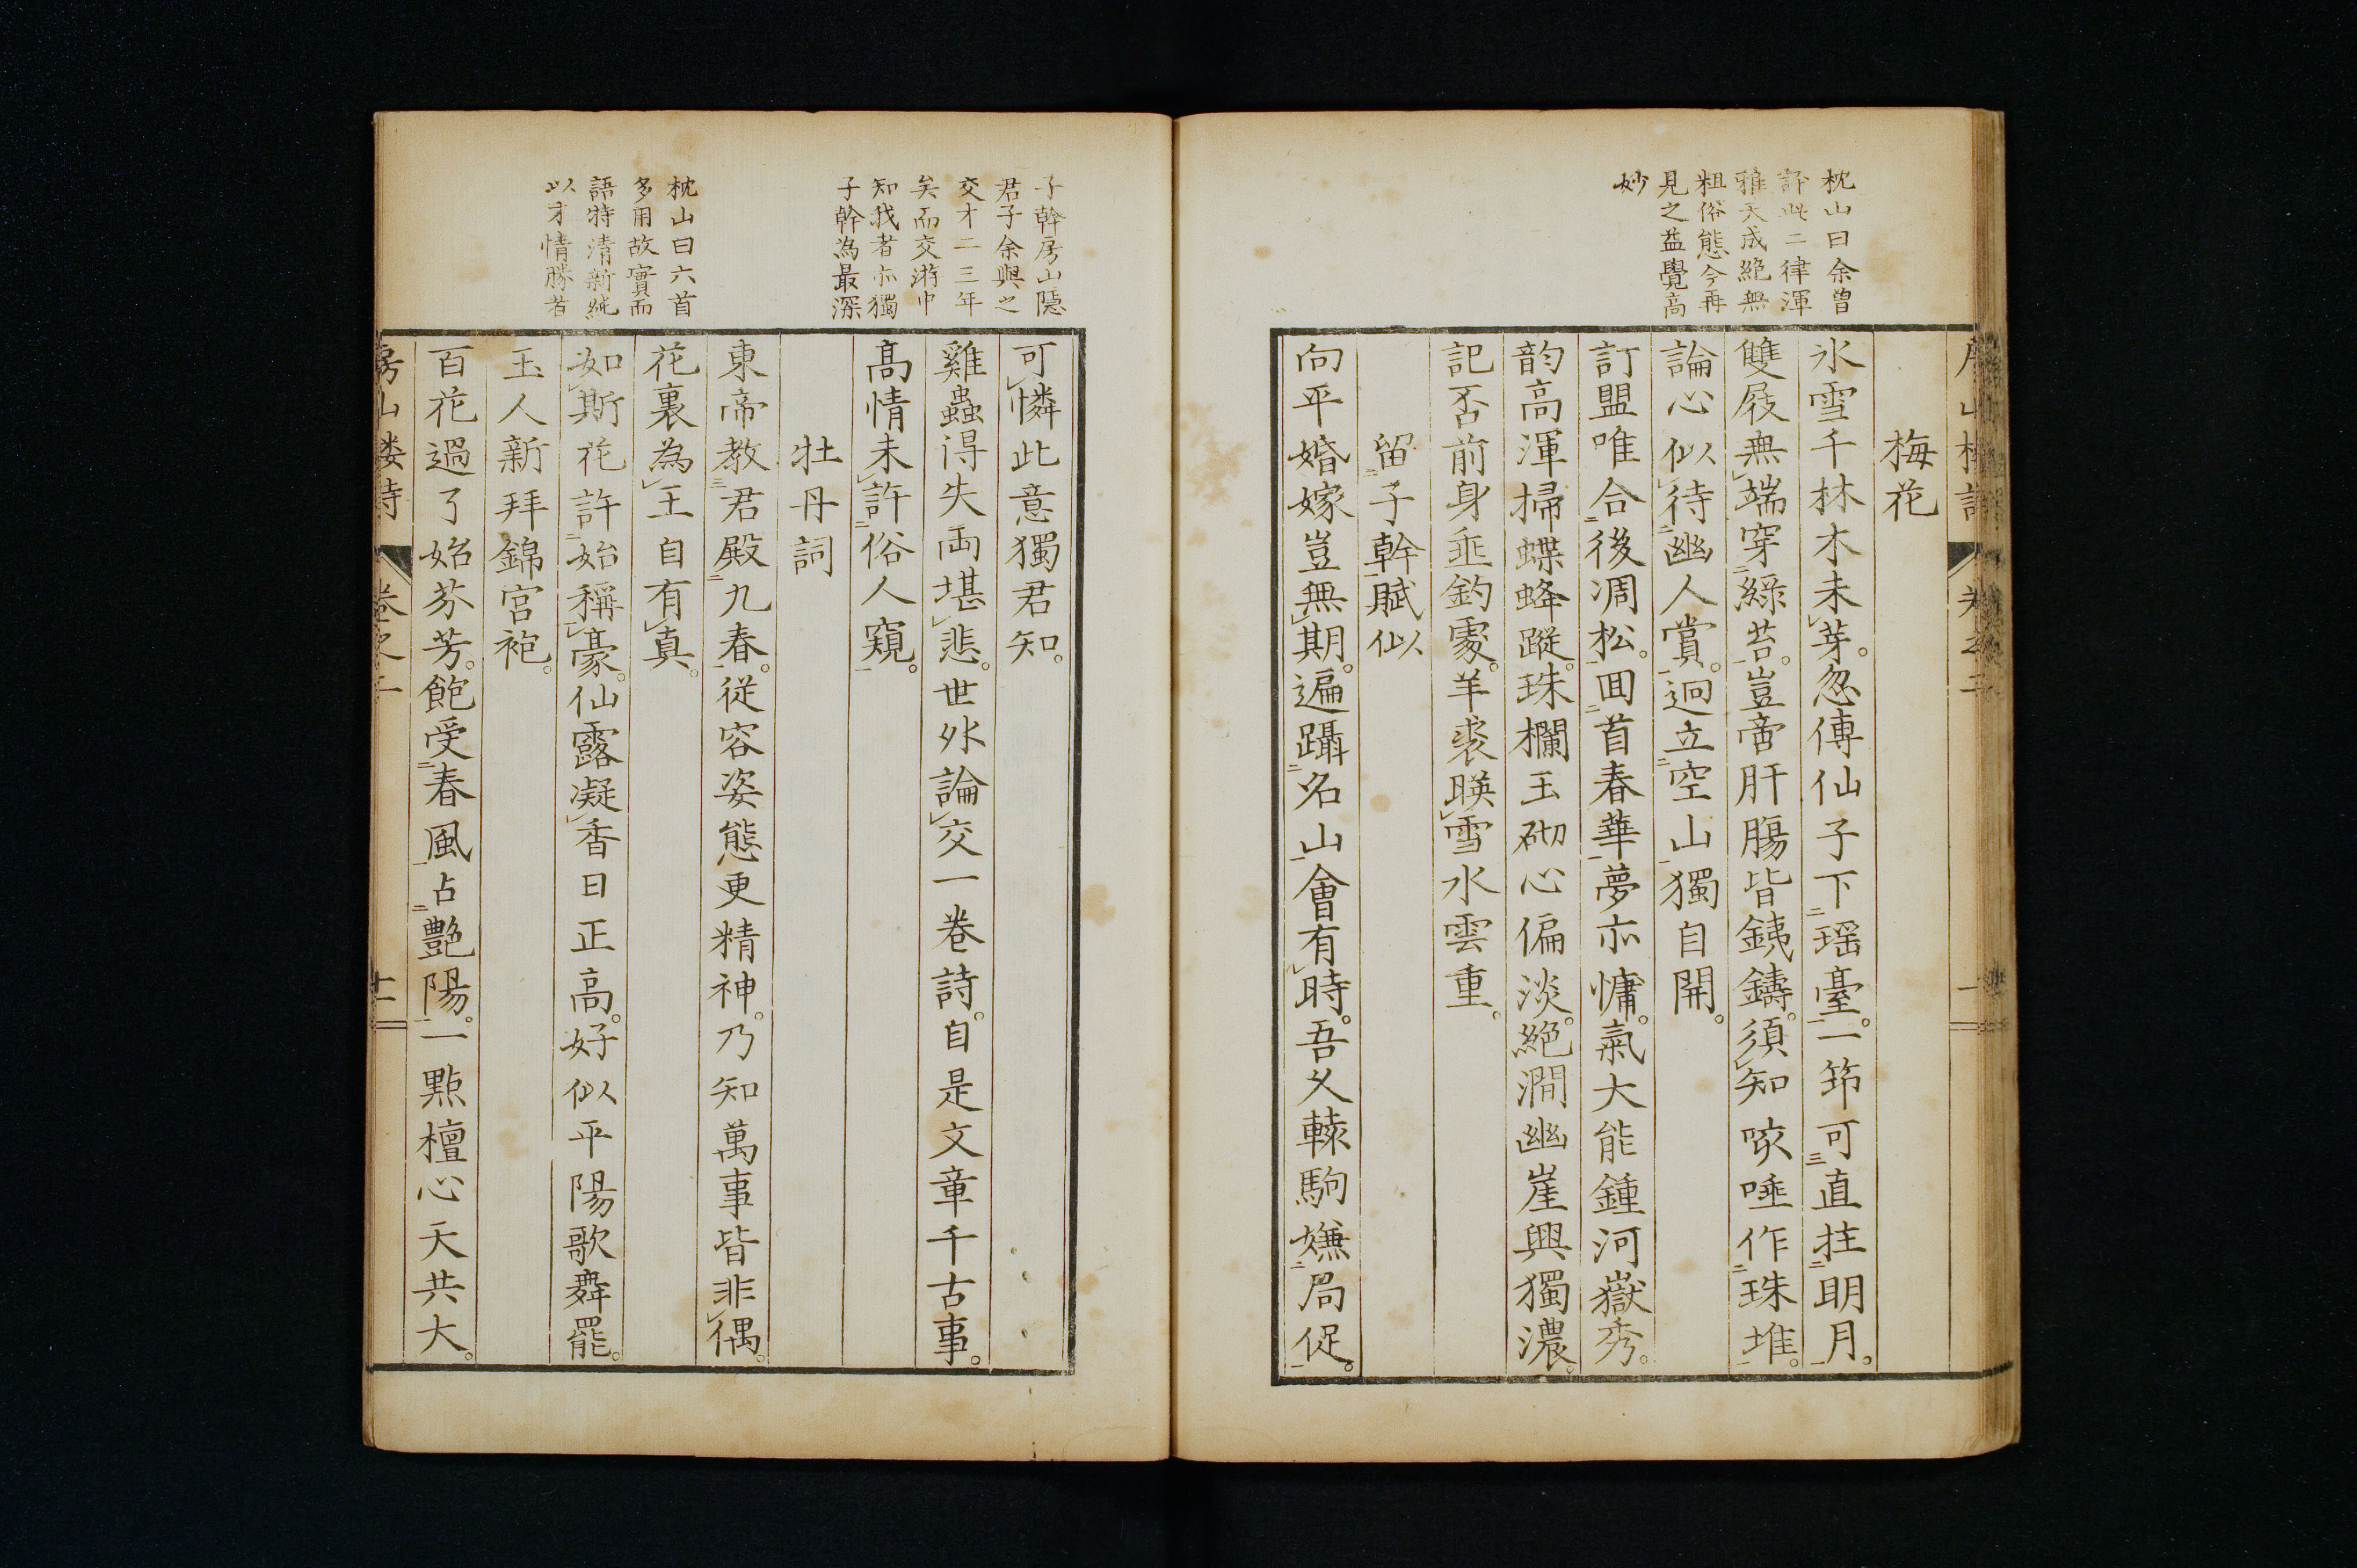 枕山曰余曾
評此二律渾
雅天成絶無
粗俗態今再
見之益覺高
妙
梅花
氷雪千林木未芽。忽傳仙子下瑶臺。一笻可直拄明月。
雙屐無端穿綠苔。豈啻肝腸皆銕鑄。須知咳唾作珠堆。
論心似待幽人賞。迥立空山獨自開。
訂盟唯合後凋松。囬首春華夢亦慵。氣大能鍾河嶽秀。
韵高渾掃蝶蜂蹤。珠欄玉砌心偏淡。絕澗幽崖興獨濃。
記否前身垂釣處。羊裘暎雪水雲重。
留子幹賦似
向平婚嫁豈無期。遍躡名山會有時。吾乆轅駒嫌局促。
子幹房山隱
君子余與之
交才二三年
矣而交游中
知我者亦獨
子幹為最深
枕山曰六首
多用故實而
語特清新純
以才情勝者
可憐此意獨君知。
雞蟲得失両堪悲。世外論交一卷詩。自是文章千古事。
高情未許俗人窺。
牡丹詞
東帝教君殿九春。從容姿態更精神。乃知萬事皆非偶。
花裏為王自有真。
如斯花許始稱豪。仙露凝香日正高。好似平陽歌舞罷。
玉人新拜錦宮袍。
百花過了始芬芳。飽受春風占艷陽。一點檀心天共大。
房山楼詩 卷之二 十一